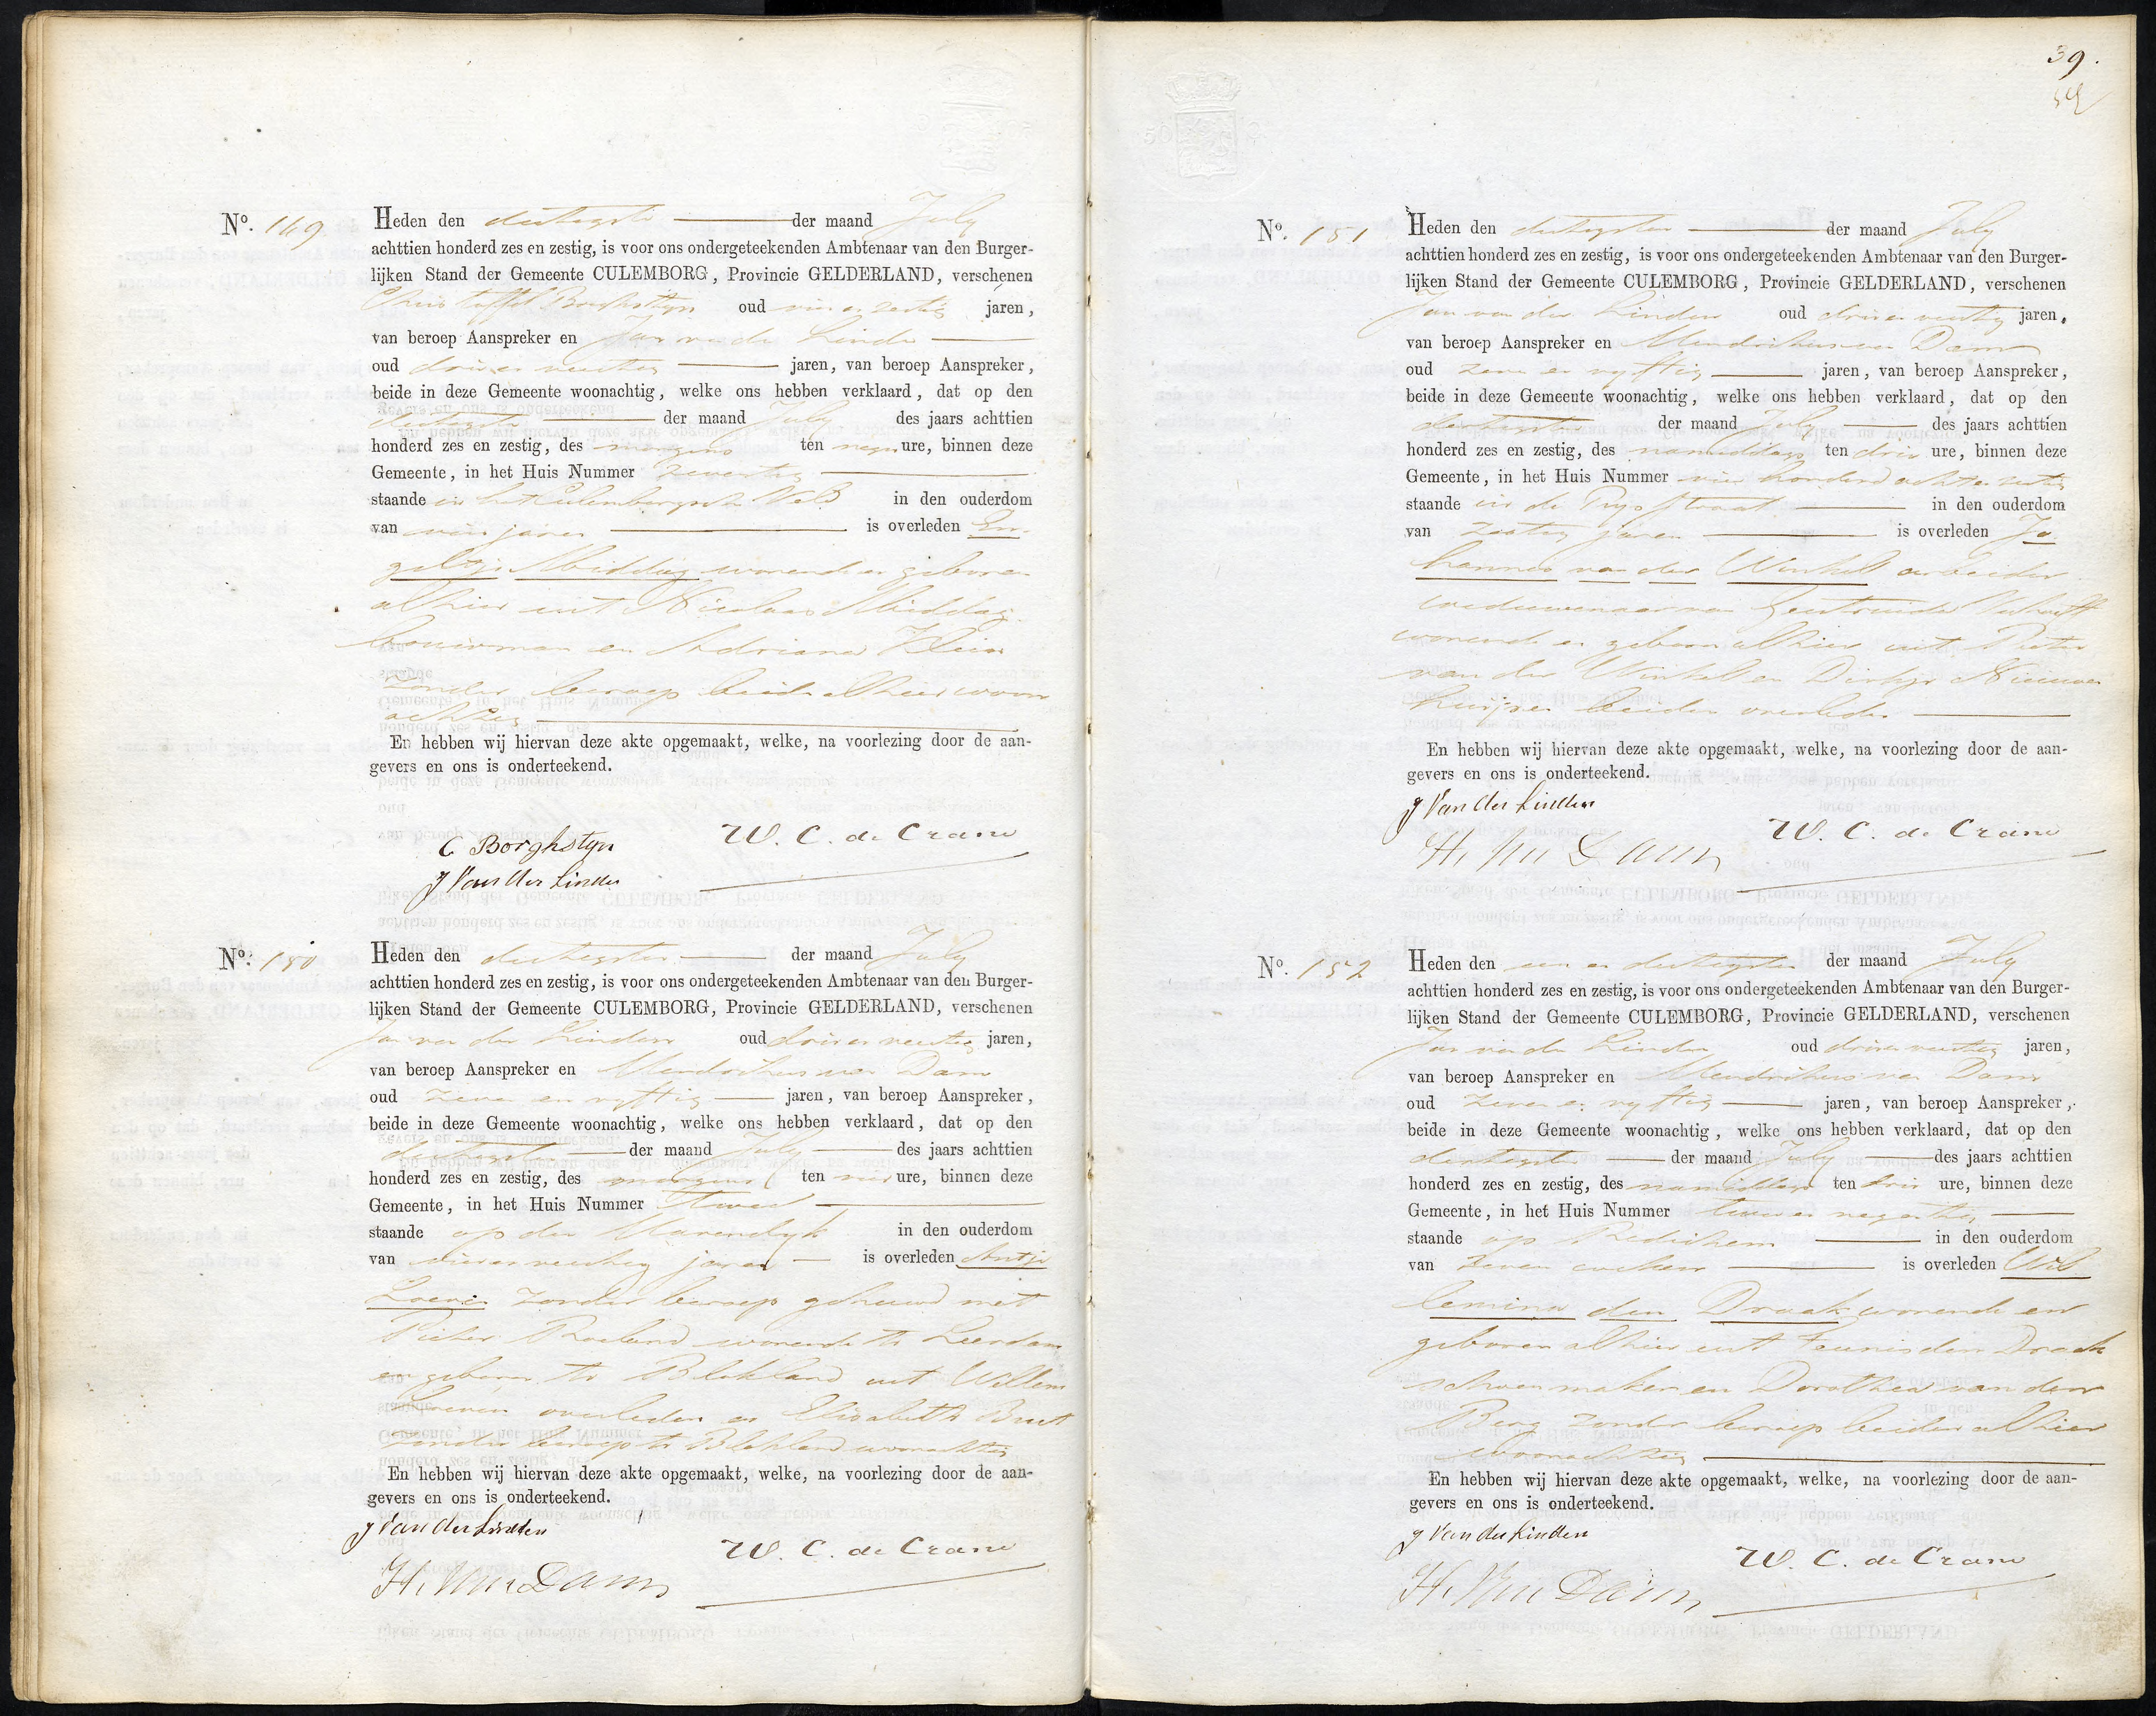 No. 149
Heden den dertigste der maand July
achttien honderd zes en zestig, is voor ons ondergeteekenden Ambtenaar van den Burger-
lijken Stand der Gemeente CULEMBORG, Provincie GELDERLAND, verschenen
Christoffel Borghstyn oud vier en zestig jaren,
van beroep Aanspreker en Jan van der Linden
oud drie en veertig jaren, van beroep Aanspreker,
beide in deze Gemeente woonachtig, welke ons hebben verklaard, dat op den
dertigste der maand July des jaars achttien
honderd zes en zestig, des morgens ten negen ure, binnen deze
Gemeente, in het Huis Nummer zeventig
staande in het Culemborgsche Veld in den ouderdom
van vier jaren is overleden En-
geltje Middag wonende en geboren
alhier uit Nicolaas Middag
bouwman en Adriana Klein
zonder beroep beide alhier woon
achtig
En hebben wij hiervan deze akte opgemaakt, welke, na voorlezing door de aan-
gevers en ons is onderteekend.
C Borghstyn
W. C. de Crane
J Van der Linden
No. 150
Heden den dertigsten der maand July
achttien honderd zes en zestig, is voor ons ondergeteekenden Ambtenaar van den Burger-
lijken Stand der Gemeente CULEMBORG, Provincie GELDERLAND, verschenen
Jan van der Linden oud drie en veertig jaren,
van beroep Aanspreker en Hendrikus van Dam
oud zeven en vyftig jaren, van beroep Aanspreker,
beide in deze Gemeente woonachtig, welke ons hebben verklaard, dat op den
dertigsten der maand July des jaars achttien
honderd zes en zestig, des morgens ten vier ure, binnen deze
Gemeente, in het Huis Nummer Twee
staande op den Varendyk in den ouderdom
van vier en veertig jaren is overleden Antje
zonder beroep gehuwd met
Pieter Roeland wonende te Leerdam
en geboren te Blokland uit Willem
overleden en Elisabeth
zonder beroep te Blokland woonachtig
En hebben wij hiervan deze akte opgemaakt, welke, na voorlezing door de aan-
gevers en ons is onderteekend.
J Van der Linden
W. C. de Crane
H. Van Dam
39.
No. 151
Heden den dertigsten der maand July
achttien honderd zes en zestig, is voor ons ondergeteekenden Ambtenaar van den Burger-
lijken Stand der Gemeente CULEMBORG, Provincie GELDERLAND, verschenen
Jan van der Linden oud drie en veertig jaren,
van beroep Aanspreker en Hendrikus van Dam
oud zeven en vyftig jaren, van beroep Aanspreker,
beide in deze Gemeente woonachtig, welke ons hebben verklaard, dat op den
dertigsten der maand July des jaars achttien
honderd zes en zestig, des namiddags ten drie ure, binnen deze
Gemeente, in het Huis Nummer vier honderd acht en
staande in de Prysstraat in den ouderdom
van zestig jaren is overleden Jo-
hannes van der Winkel arbeider
weduwenaar van Geertruida
wonende en geboren alhier uit Pieter
van der Winkel en Dirkje Nieuwen
huizen beiden overleden
En hebben wij hiervan deze akte opgemaakt, welke, na voorlezing door de aan-
gevers en ons is onderteekend.
J Van der Linden
W. C. de Crane
H. Van Dam
No. 152
Heden den een en dertigsten der maand July
achttien honderd zes en zestig, is voor ons ondergeteekenden Ambtenaar van den Burger-
lijken Stand der Gemeente CULEMBORG, Provincie GELDERLAND, verschenen
Jan van der Linden oud drie en veertig jaren,
van beroep Aanspreker en Hendrikus van Dam
oud zeven en vyftig jaren, van beroep Aanspreker,
beide in deze Gemeente woonachtig, welke ons hebben verklaard, dat op den
dertigsten der maand July des jaars achttien
honderd zes en zestig, des namiddags ten drie ure, binnen deze
Gemeente, in het Huis Nummer twee en negentig
staande op Redichem in den ouderdom
van zeven weken is overleden Wil
lemina den Draak wonende en
geboren alhier uit Teunis den Draak
schoenmaker en Dorothea van den
Berg zonder beroep beiden alhier
woonachtig
En hebben wij hiervan deze akte opgemaakt, welke, na voorlezing door de aan-
gevers en ons is onderteekend.
J Van der Linden
W. C. de Crane
H. Van Dam